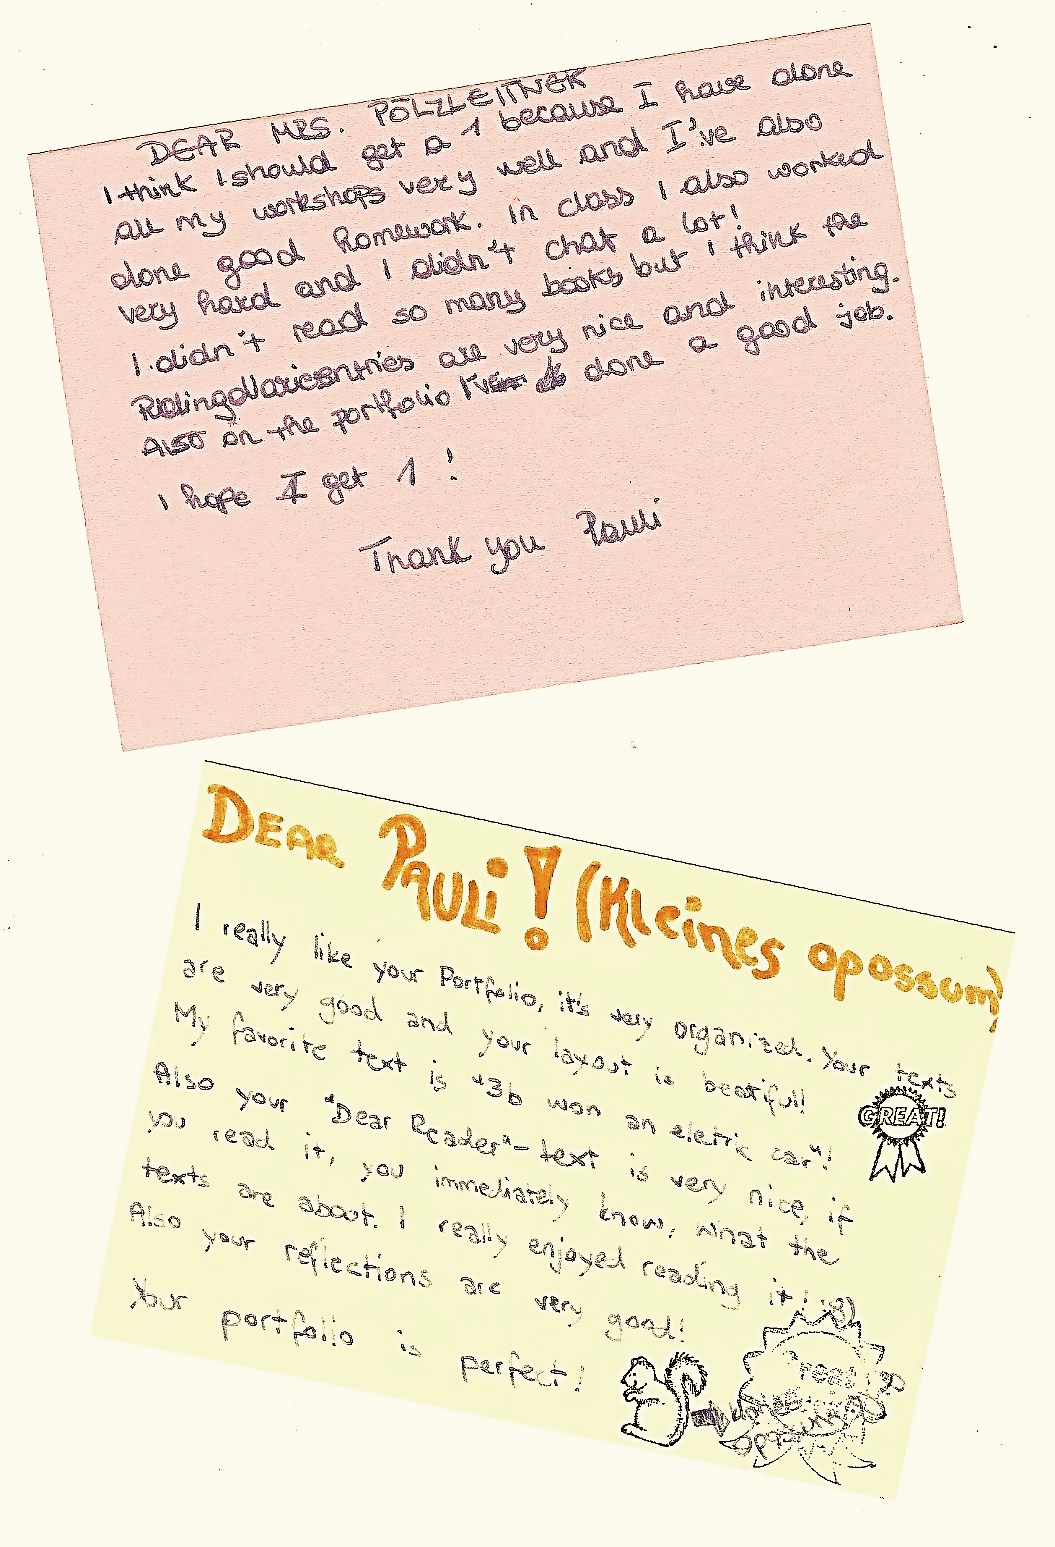 DEAR MRS. PÖLZLEITNER
I think I should get a 1 because I have done
all my workshops very well and I've also
done good homework. In class I also worked
very hard and I didn't chat a lot!
I didn't read so many books but I think the
entries are very nice and interesting.
Also on the portfolio I've done a good job.
I hope I get 1!
Thank you Pauli
DEAR PAULi! (Kleines opossum)
I really like your Portfolio, it's very organized. Your texts
are very good and your layout is beatiful!
My favorite text is "3b won an eletric car"!
GREAT!
Also your "Dear Reader"-text is very nice, if
you read it, you immediately know, what the
texts are about. I really enjoyed reading it! :8)
Also your reflections are very good!
Your portfolio is perfect!